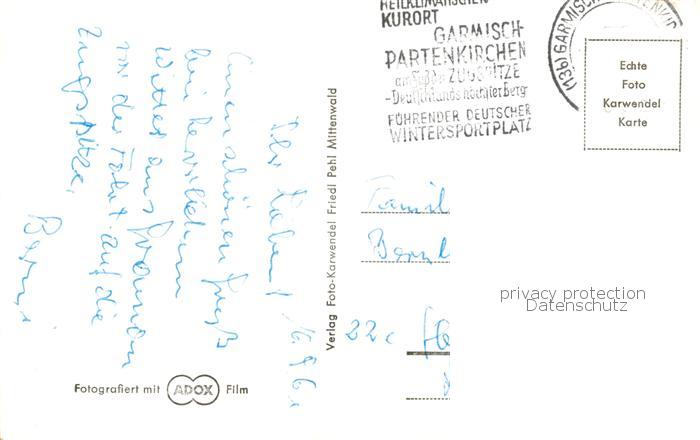 HEILKLIMATISCHER
KURORT
GARMISCH-
PARTENKIRCHEN
am Fuße der ZUGSPITZE
-Deutschlands höchster Berg-
FÜHRENDER DEUTSCHER
WINTERSPORTPLATZ
(13b) GARMISCH-PARTENKIR
Echte
Foto
Karwendel
Karte
Ihr Lieben!
Einen schönen Gruß
bei herrlichem
Wetter aus
von der Fahrt auf die
Zugspitze.
Verlag Foto-Karwendel Friedl Pehl Mittenwald
Famil
22c
privacy protection
Datenschutz
Fotografiert mit ADOX Film